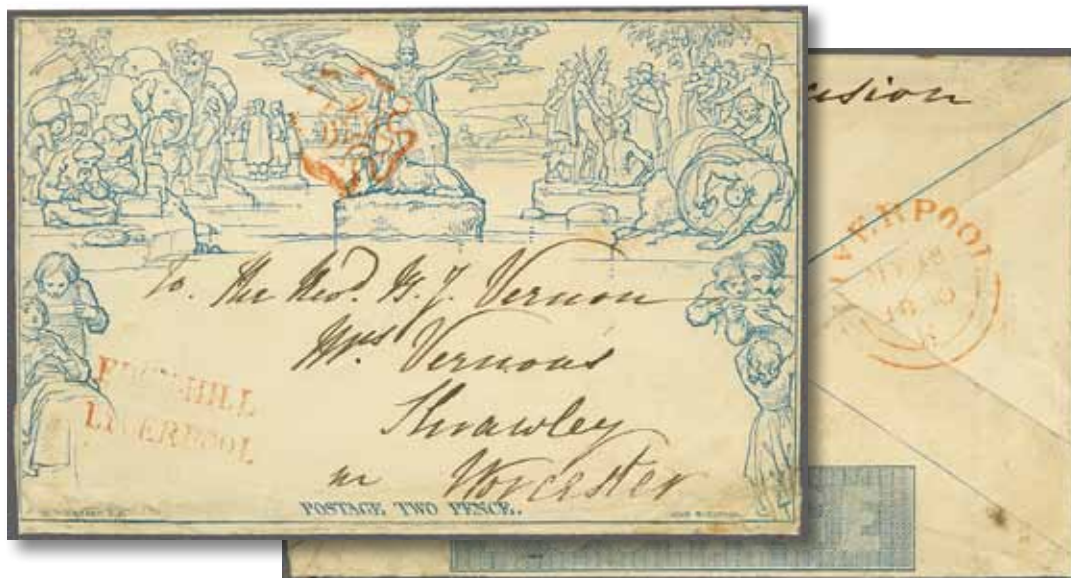 To. The Revd. G. J. Vernon
Mrs Vernon's
Shrawley
nr Worcester
EDGE-HILL
LIVERPOOL
POSTAGE TWO PENCE.
LIVERPOOL